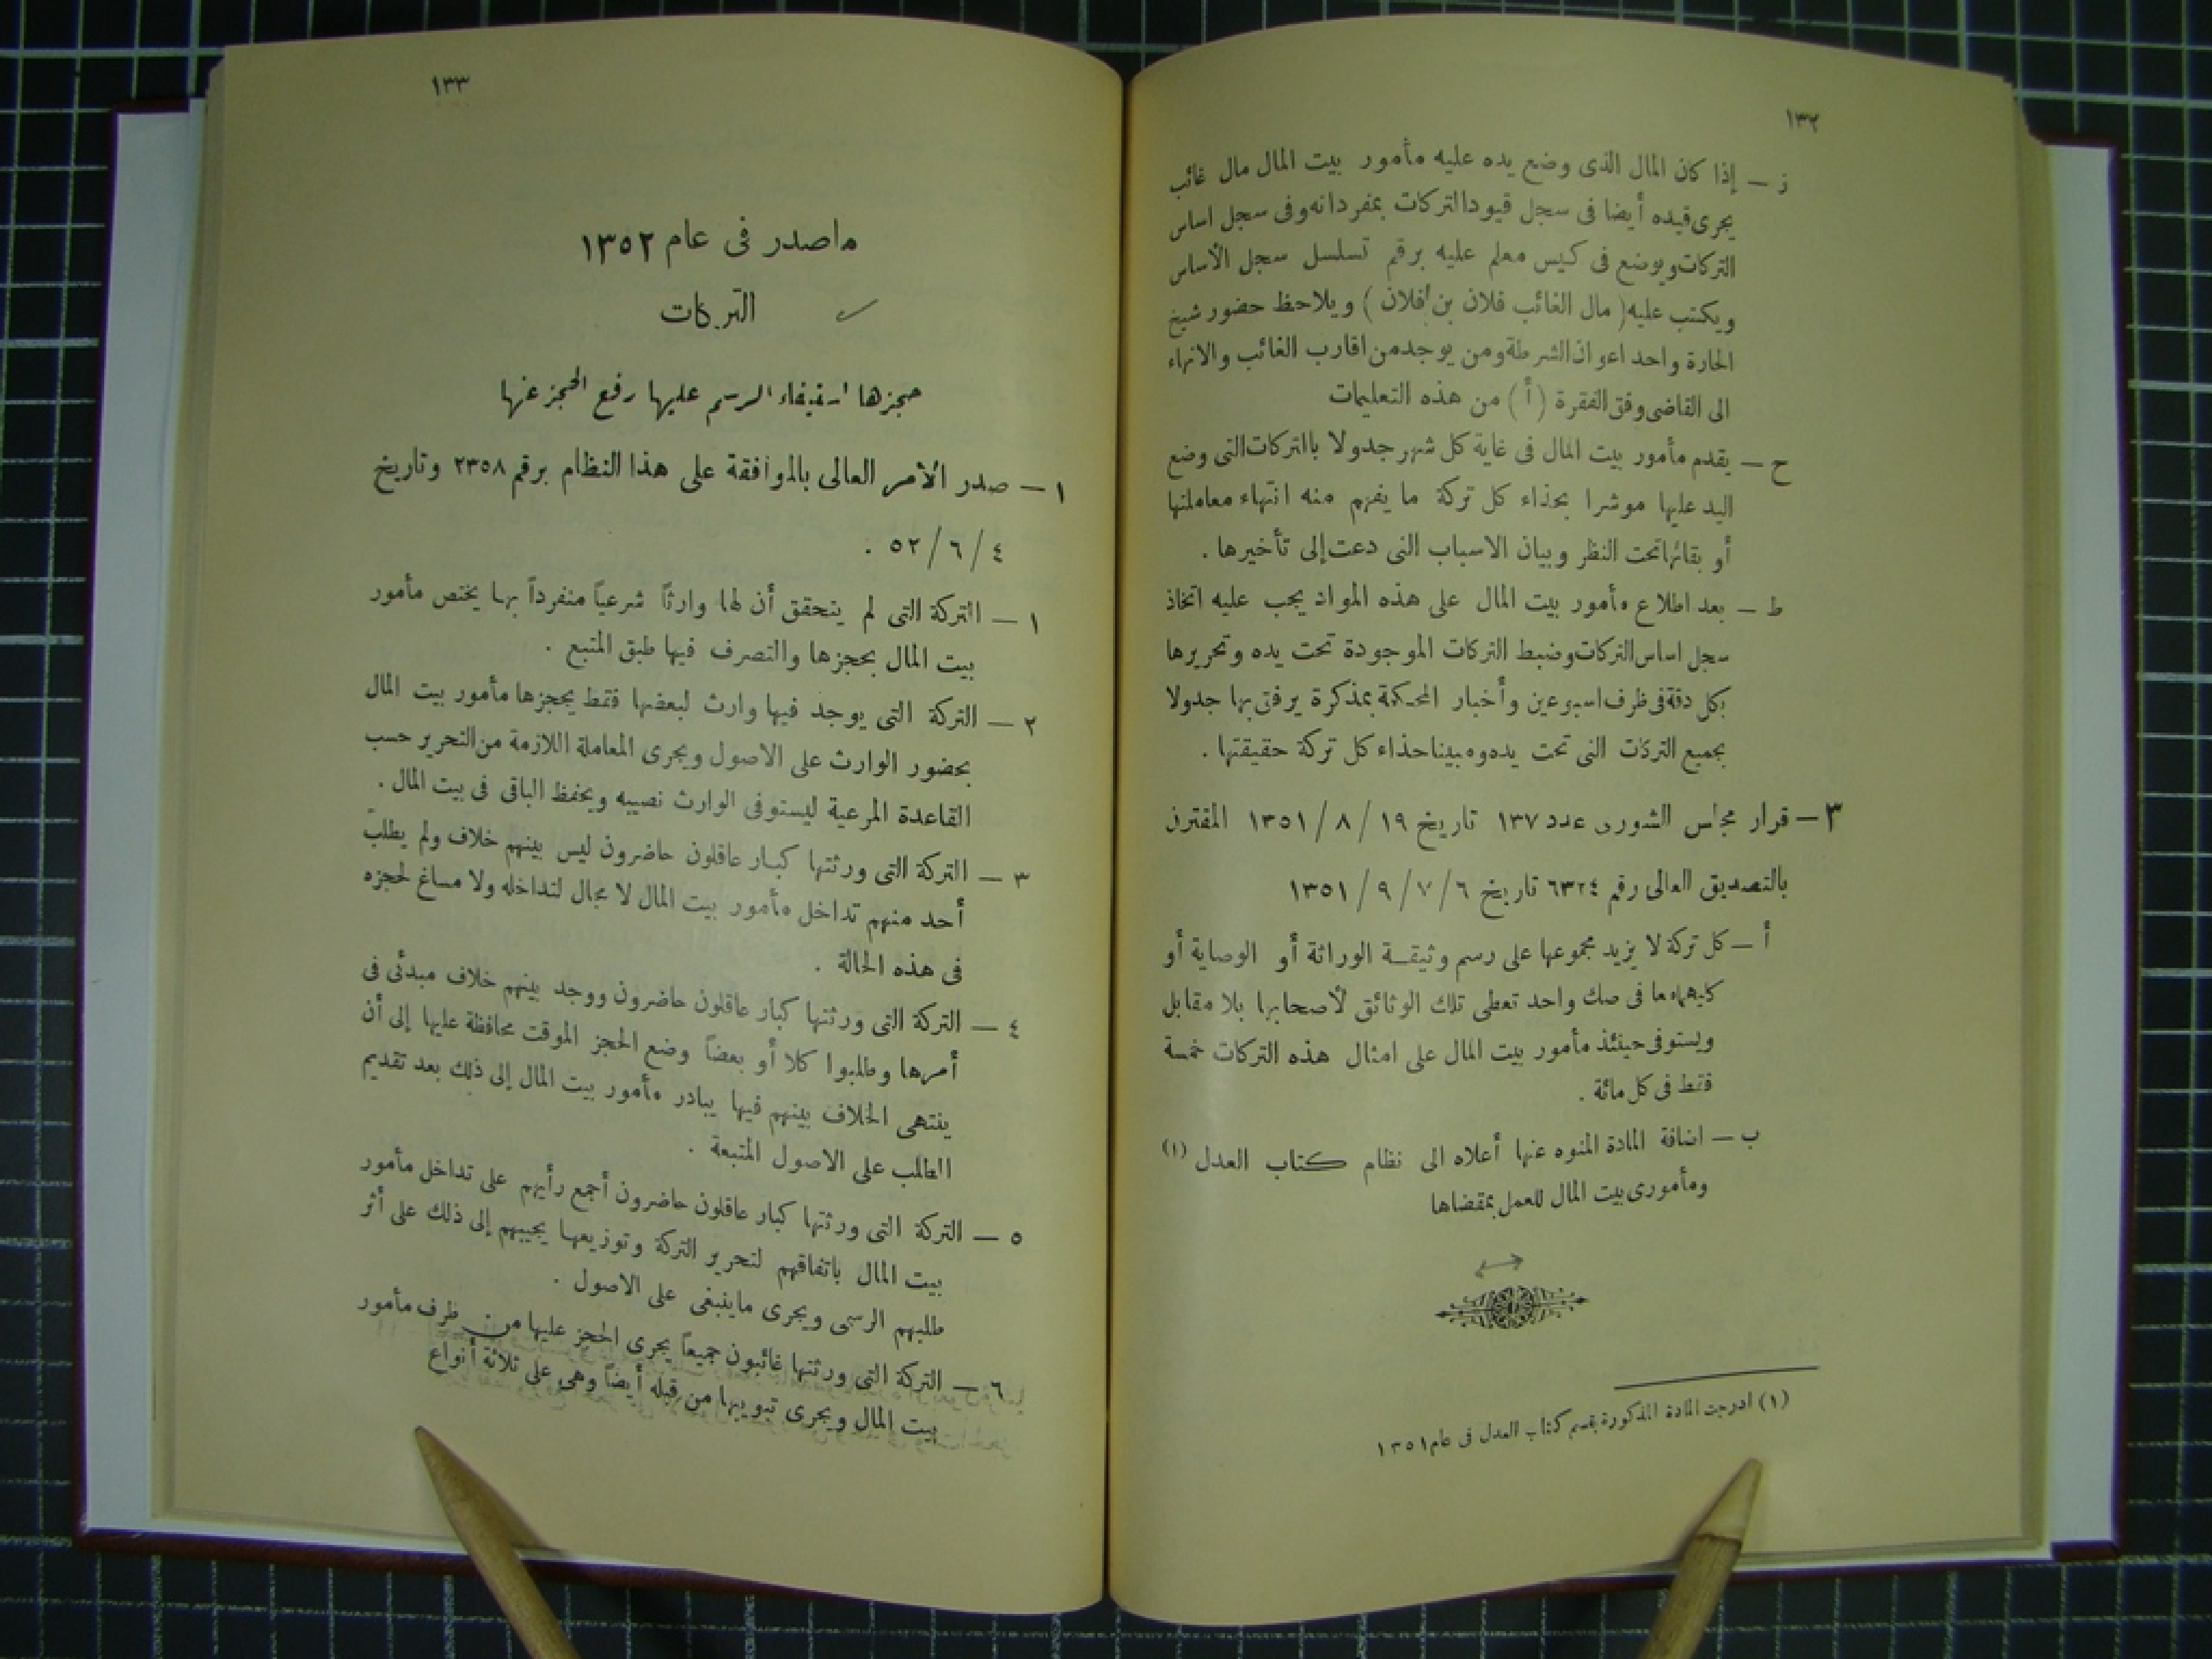 ١٣٢
ز — إذا كان المال الذى وضع يده عليه مأمور بيت المال مال غائب
يجرى قيده أيضا فى سجل قيود التركات بمفرداته وفى سجل اساس
التركات ويوضع فى كيس معلم عليه برقم تسلسل سجل الأساس
ويكتب عليه ( مال الغائب فلان بن فلان ) ويلاحظ حضور شيخ
الحارة واحد اعوان الشرطة ومن يوجد من اقارب الغائب والانهاء
الى القاضى وفق الفقرة ( أ ) من هذه التعليمات
ح — يقدم مأمور بيت المال فى غاية كل شهر جدولا بالتركات التى وضع
اليد عليها موشرا بحذاء كل تركة ما يفهم منه انتهاء معاملتها
أو بقائها تحت النظر وبيان الاسباب التى دعت إلى تأخيرها .
ط — بعد اطلاع مأمور بيت المال على هذه المواد يجب عليه اتخاذ
سجل اساس التركات وضبط التركات الموجودة تحت يده وتحريرها
بكل دقة فى ظرف اسبوعين وأخبار المحكمة بمذكرة يرفق بها جدولا
بجميع التركات التى تحت يده ومبينا حذاء كل تركة حقيقتها .
٣ — قرار مجلس الشورى عدد ١٣٧ تاريخ ١٩ / ٨ / ١٣٥١ المقترن
بالتصديق العالى رقم ٦٣٢٤ تاريخ ٦ / ٧ / ٩ / ١٣٥١
أ — كل تركة لا يزيد مجموعها على رسم وثيقة الوراثة أو الوصاية أو
كليهما معا فى صك واحد تعطى تلك الوثائق لأصحابها بلا مقابل
ويستوفى حينئذ مأمور بيت المال على امثال هذه التركات خمسة
فقط فى كل مائة .
ب — اضافة المادة المنوه عنها أعلاه الى نظام كتاب العدل (١)
ومأمورى بيت المال للعمل بمقضاها
(١) ادرجت المادة المذكورة بقسم كتاب العدل فى عام ١٣٥١
١٣٣
ماصدر فى عام ١٣٥٢
التركات
حجزها استيفاء الرسم عليها رفع الحجز عنها
١ — صدر الأمر العالى بالموافقة على هذا النظام برقم ٢٣٥٨ وتاريخ
٤ / ٦ / ٥٢ .
١ — التركة التى لم يتحقق أن لها وارثاً شرعياً منفرداً بها يختص مأمور
بيت المال بحجزها والتصرف فيها طبق المتبع .
٢ — التركة التى يوجد فيها وارث لبعضها فقط يحجزها مأمور بيت المال
بحضور الوارث على الاصول ويجرى المعاملة اللازمة من التحرير حسب
القاعدة المرعية ليستوفى الوارث نصيبه ويحفظ الباقى فى بيت المال .
٣ — التركة التى ورثتها كبار عاقلون حاضرون ليس بينهم خلاف ولم يطلب
أحد منهم تداخل مأمور بيت المال لا مجال لتداخله ولا مساغ لحجزه
فى هذه الحالة .
٤ — التركة التى ورثتها كبار عاقلون حاضرون ووجد بينهم خلاف مبدئى فى
أمرها وطلبوا كلا أو بعضاً وضع الحجز الموقت محافظة عليها إلى أن
ينتهى الخلاف بينهم فيها يبادر مأمور بيت المال إلى ذلك بعد تقديم
الطلب على الاصول المتبعة .
٥ — التركة التى ورثتها كبار عاقلون حاضرون أجمع رأيهم على تداخل مأمور
بيت المال باتفاقهم لتحرير التركة وتوزيعها يجيبهم إلى ذلك على أثر
طلبهم الرسمى ويجرى ماينبغى على الاصول .
٦ — التركة التى ورثتها غائبون جميعاً يجرى الحجز عليها من طرف مأمور
بيت المال ويجرى تبويبها من قبله أيضاً وهى على ثلاثة أنواع